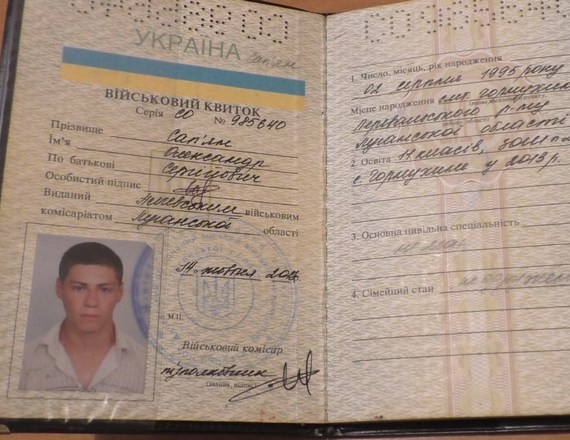 УКРАЇНА
ВІЙСЬКОВИЙ КВИТОК
Серія СО № 985640
Прізвище Сап'ян
Ім'я Олександр
По батькові Сергійович
Особистий підпис
Виданий військовим
комісаріатом Луганської області
14 жовтня
М.П.
Військовий комісар
підполковник
1. Число, місяць, рік народження
02 серпня 1995 року
Місце народження смт.
Перевальського р-ну
Луганської області
2. Освіта 11 класів,
у 2013 р.
3. Основна цивільна спеціальність
4. Сімейний стан